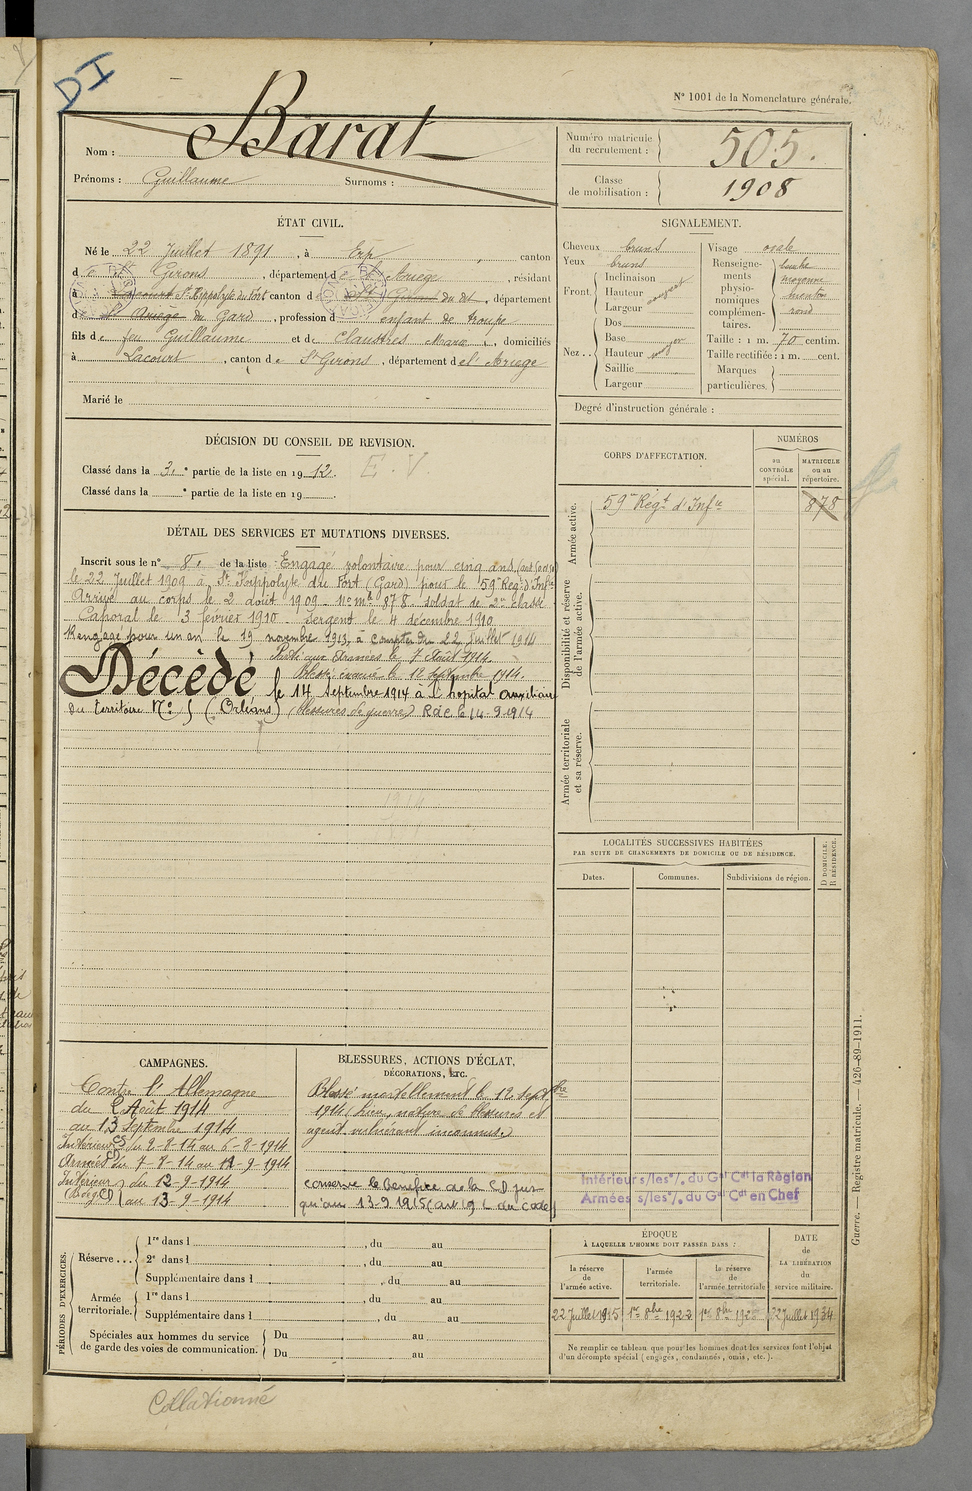 DI
Nº 1001 de la Nomenclature générale.
Nom : Barat
Prénoms : Guillaume Surnoms :
Numéro matricule du recrutement : 505.
Classe de mobilisation : 1908
ÉTAT CIVIL.
Né le 22 Juillet 1891, à Erp, canton
de St Girons, département de l'Ariège, résidant
à Lacourt St Hippolyte du Fort canton de St Girons du dit, département
de l'Ariège du Gard, profession d enfant de troupe
fils de feu Guillaume et de Claustres Marie, domiciliés
à Lacourt, canton de St Girons, département de l'Ariège
Marié le
SIGNALEMENT.
Cheveux bruns
Yeux bruns
Front. Inclinaison
Hauteur
Largeur
Nez .. Dos
Base moyen
Hauteur
Saillie
Largeur
Visage ovale
Renseignements physionomiques complémentaires.
moyenne
menton
rond
Taille : 1 m. 70 centim.
Taille rectifiée : 1 m. cent.
Marques particulières.
Degré d'instruction générale :
DÉCISION DU CONSEIL DE REVISION.
Classé dans la 3e partie de la liste en 1912. E. V.
Classé dans la e partie de la liste en 19
CORPS D'AFFECTATION.
NUMÉROS
au CONTRÔLE spécial.
MATRICULE ou au répertoire.
Armée active.
59e Régt d'Infie 878
Disponibilité et réserve de l'armée active.
Armée territoriale et sa réserve.
DÉTAIL DES SERVICES ET MUTATIONS DIVERSES.
Inscrit sous le nº 8. de la liste Engagé volontaire pour cinq ans
le 22 Juillet 1909 à St Hippolyte du Fort (Gard) pour le 59e Régt d'Infie
Arrivé au corps le 2 août 1909. Nº Mle 878. soldat de 2e classe
Caporal le 3 février 1910. Sergent le 4 décembre 1910
Rengagé pour un an le 19 novembre 1913, à compter du 22 Juillet 1914
Parti aux Armées le 7 Août 1914.
Blessé évacué le 12 Septembre 1914.
Décédé le 14 Septembre 1914 à l'hopital auxiliaire
du territoire Nº 5 (Orléans) (blessures de guerre) Rdc le 14-9-1914
LOCALITÉS SUCCESSIVES HABITÉES
PAR SUITE DE CHANGEMENTS DE DOMICILE OU DE RÉSIDENCE.
Dates. Communes. Subdivisions de région. D DOMICILE. R RÉSIDENCE.
CAMPAGNES.
Contre l'Allemagne
du 2 Août 1914
au 13 Septembre 1914
Intérieur CS du 2-8-14 au 6-8-1914
Armées CS du 7-8-14 au 12-9-1914
Intérieur du 12-9-1914
CD au 13-9-1914
BLESSURES, ACTIONS D'ÉCLAT, DÉCORATIONS, ETC.
Blessé mortellement le 12 Septbre
1914 (Lieu, nature de blessures et
agent vulnérant inconnus.)
conserve le bénéfice de la CD jus-
qu'au 13-9 1915 (art 19 L du Code)
Intérieur s/les °/. du Gal Cdt la Région
Armées s/les °/. du Gal Cdt en Chef
PÉRIODES D'EXERCICES.
Réserve ... 1re dans l , du au
2e dans l , du au
Supplémentaire dans l , du au
Armée territoriale. 1re dans l , du au
Supplémentaire dans l , du au
Spéciales aux hommes du service de garde des voies de communication. Du au
Du au
ÉPOQUE
À LAQUELLE L'HOMME DOIT PASSER DANS :
la réserve de l'armée active.
l'armée territoriale.
la réserve de l'armée territoriale
DATE de LA LIBÉRATION du service militaire.
22 Juillet 1915 1er 8bre 1922 1er 8bre 1928 22 Juillet 1934
Ne remplir ce tableau que pour les hommes dont les services font l'objet
d'un décompte spécial (engagés, condamnés, omis, etc.).
Guerre. — Registre matricule. — 426-89-1911.
Collationné